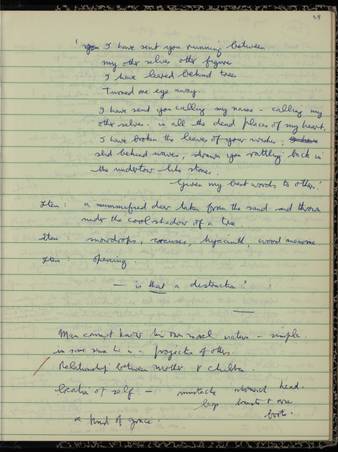 I have sent you running between
my other selves other figures
I have leaned behind trees
Turned my eye away.
I have sent you calling my name - calling my
other selves - in all the dead places of my heart.
I have broken the leaves of your words.
slid behind waves, drown you rattling back in
the undertow like stones.
Given my best words to others.'
Item: a mummified deer taken from the sand and thrown
under the cool shadow of a tree
Item: snowdrops, crocuses, hyacinth, wood anemone
Item: opening.
— is that a distraction?
Man cannot know his own moral nature - simple
in some sense he is - projection of others.
Relationship between mother & children
location of self - mustache head.
legs boots.
a kind of grace.